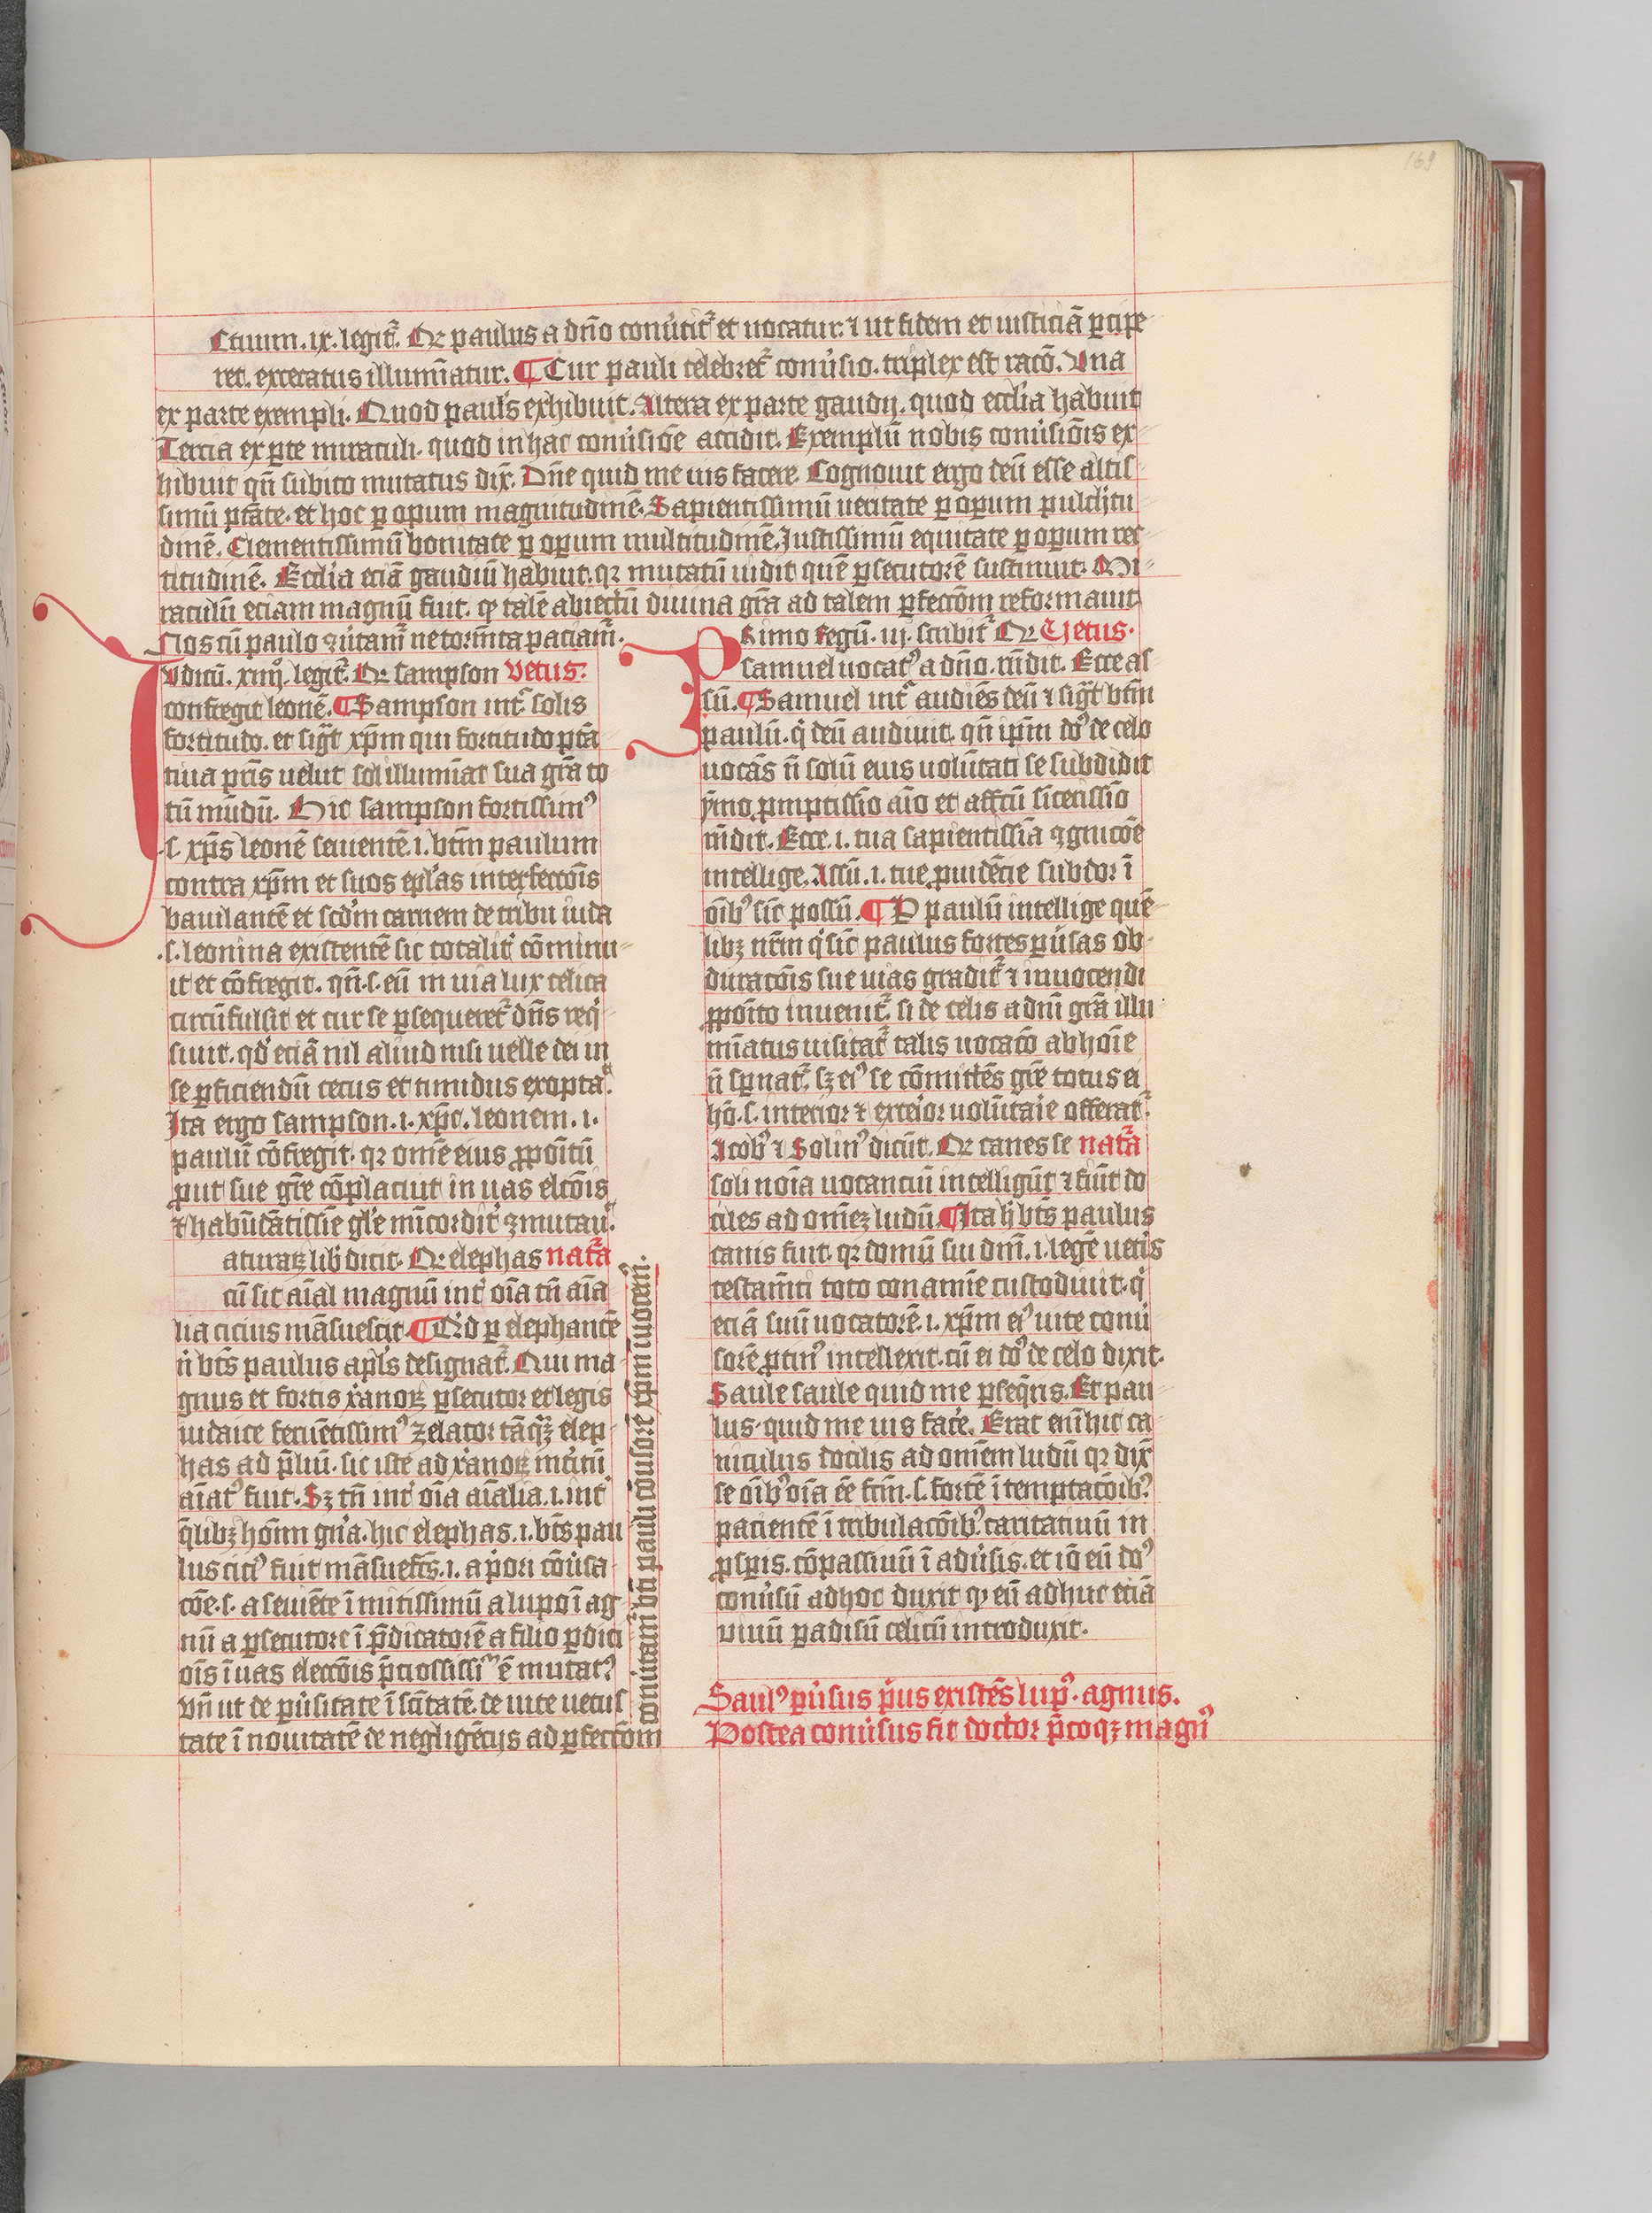 169
Ctuum. ix. legit᷑. Qr paulus a dn̄o conu̓tit᷑ et uocatur. ⁊ ut fidem et iusticiā ꝑcipe
ret. excecatus illumīatur. ¶ Cur pauli celebret᷑ conu̓sio. triplex est racō. Vna
ex parte exempli. Quod paul's exhibuit. Altera ex parte gaudij. quod eccl'ia habuit
Tercia ex ꝑte miraculi. quod in hac conu̓sioē accidit. Exemplū nobis conu̓siōis ex
hibuit qn̄ subito mutatus dix̄. Dn̄e quid me uis facere. Cognouit ergo deū esse altis
simū ptāte. et hoc ꝑ opum magnitudinē. Sapientissimū ueritate ꝑ opum pulch̓tu
dinē. Clementissimū bonitate ꝑ opum multitudinē. Iustissimū equitate ꝑ opum rec
titudinē. Eccl'ia eciā gaudiū habuit. qr mutatū uidit quē ꝑsecutorē sustinuit. Mi
raculū eciam magnū fuit. ꝙ talē abiectū diuina gr̄a ad talem ꝑfeccōm reformauit
Nos cū paulo ꝯu̓tam᷑ ne torm̄ta paciam᷑.
Iudicū. xiiij. legit᷑. Qr sampson Vetus.
confregit leonē. ¶ Sampson int᷑ solis
fortitudo. et sigt᷑ xp̄m qui fortitudo ptā
tiua pr̄is uelut sol illumīat sua gr̄a to
tū mūdū. Hic sampson fortissimꝰ
.s. xp̄s leonē seuientē .i. btm̄ paulum
contra xp̄m et suos ep̄las interfeccōis
bauilantē et scd'm carnem de tribu iuda
.s. leonina existentē sic totalit᷑ cōminu
it et cōfregit. qn̄ .s. eū in uia lux celica
circūfulsit et cur se ꝑsequeret᷑ dn̄s req̓
siuit. qd' eciā nil aliud nisi uelle dei in
se ꝑficiendū cecus et timidus exoptaᵗ.
Ita ergo sampson .i. xp̄c. leonem .i.
paulū cōfregit. qr omē eius ꝓpoītū
put sue gr̄e cōplacuit in uas elcōis
⁊ habūdātissīe gl'e mīcordit᷑ ꝯmutauᵗ.
aturaꝝ lib᷑ dicit. Qr elephas natr̄a
cū sit aīal magnū int᷑ oīa tn̄ aīa
lia cicius māsuescit. ¶ Qd' ꝑ elephantē
n̓ bt̄s paulus apl's designat᷑. Qui ma
gnus et fortis xr̓anoꝝ ꝑsecutor et legis
iudaice feruētissimꝰ zelator tāqꝫ elep
has ad p̄liū. sic iste ad xr̓anoꝝ int̓itū
aīatꝰ fuit. Sꝫ tn̄ int᷑ oīa aīalia .i. int᷑
q̄libꝫ hoīm gn̓a. hic elephas .i. bt̄s pau
lus citꝰ fuit māsuefc̄s .i. a p̓ori cōu̓sa
cōe .s. a seuiēte ī mitissimū a lupo ī ag
nū a ꝑsecutore ī p̄dicatorē a filio ꝑdici
oīs ī uas eleccōis p̄ciosissiᵐ ē mutatꝰ
vn̄ ut de pu̓sitate ī sc̄itatē. de uite uetus
tate ī nouitatē de negligēcijs ad ꝑfeccōm
conu̓tam᷑ bt̄i pauli cōu̓sore xp̄m iuocem᷑.
Primo Regū. iij. scribit᷑ Qr Vetus.
samuel uocatꝰ a dn̄o. rn̄dit. Ecce as
sū. ¶ Samuel int᷑ audiēs deū ⁊ sigt᷑ btm̄
paulū. q̓ deū audiuit. qn̄ ip̄m dꝰ de celo
uocās n̄ solū eius uolūtati se subdidit
ẏmo ꝓmptissīo aīo et affcū sīcerissīo
rn̄dit. Ecce .i. tua sapientissīa ꝯgnicōē
intellige. Assū .i. tue ꝓuidēcie subdor ī
oībꝰ sic possū. ¶ P paulū intellige quē
libꝫ nr̄m q̓ sic paulus fortes ꝑu̓sas ob
duracōis sue uias gradit᷑ ⁊ in nocendi
ꝓpoīto inuenit᷑. si de celis a dn̄i gr̄a illu
mīatus uisitat᷑ talis uocacō ab hoīe
n̄ sp̄nat᷑. sꝫ eiꝰ se cōmittēs gr̄e totus ei
hō .s. interior ⁊ exte̓ior uolūtarie offerat᷑.
Iacobꝰ ⁊ Solinꝰ dicūt. Qr canes se natr̄a
soli noīa uocanciū intelligūt ⁊ fiūt do
ciles ad omēꝫ ludū. ¶ Ita h̓ bt̄s paulus
canis fuit. qr domū sui dnī .i. legē uet̓is
testam̄ti toto conamīe custodiuit. q̓
eciā suū uocatorē .i. xp̄m eiꝰ uite conu̓
sorē ꝓtinꝰ intellexit. cū ei dꝰ de celo dixit.
Saule saule quid me ꝑseq̄ris. Et pau
lus. quid me uis fac̓e. Erat eni̅ hic ca
niculus docilis ad omēm ludū qr dix̄
se oībꝰ oīa eē fcm̄ .s. fortē ī temptacōibꝰ.
pacientē ī tribulacōibꝰ. caritatiuū in
ꝓsꝑis. cōpassiuū ī adu̓sis. et iō eū dꝰ
conu̓sū adhoc duxit ꝙ eū adhuc eciā
viuū ꝑadisū celicū introduxit.
Saulꝰ ꝑu̓sus p̓us existēs lupꝰ. agnus.
Postea conu̓sus fit doctor p̄coqꝫ magnꝰ